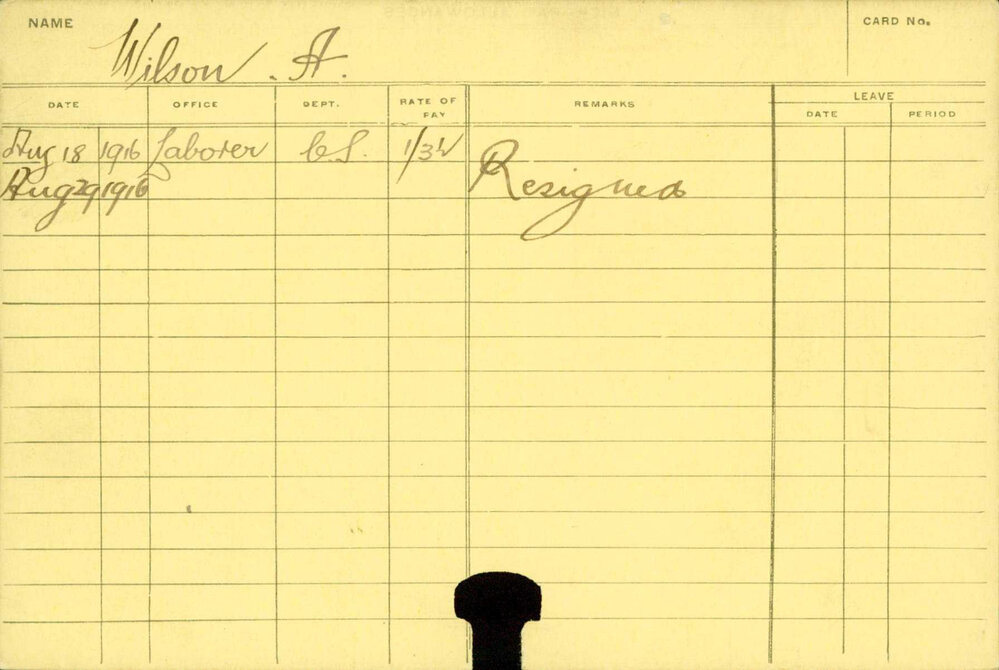 NAME
Wilson. A.
CARD No.
DATE OFFICE DEPT. RATE OF PAY REMARKS LEAVE
DATE PERIOD
Aug 18 1916 Laborer C.S. Resigned
Aug 29 1916